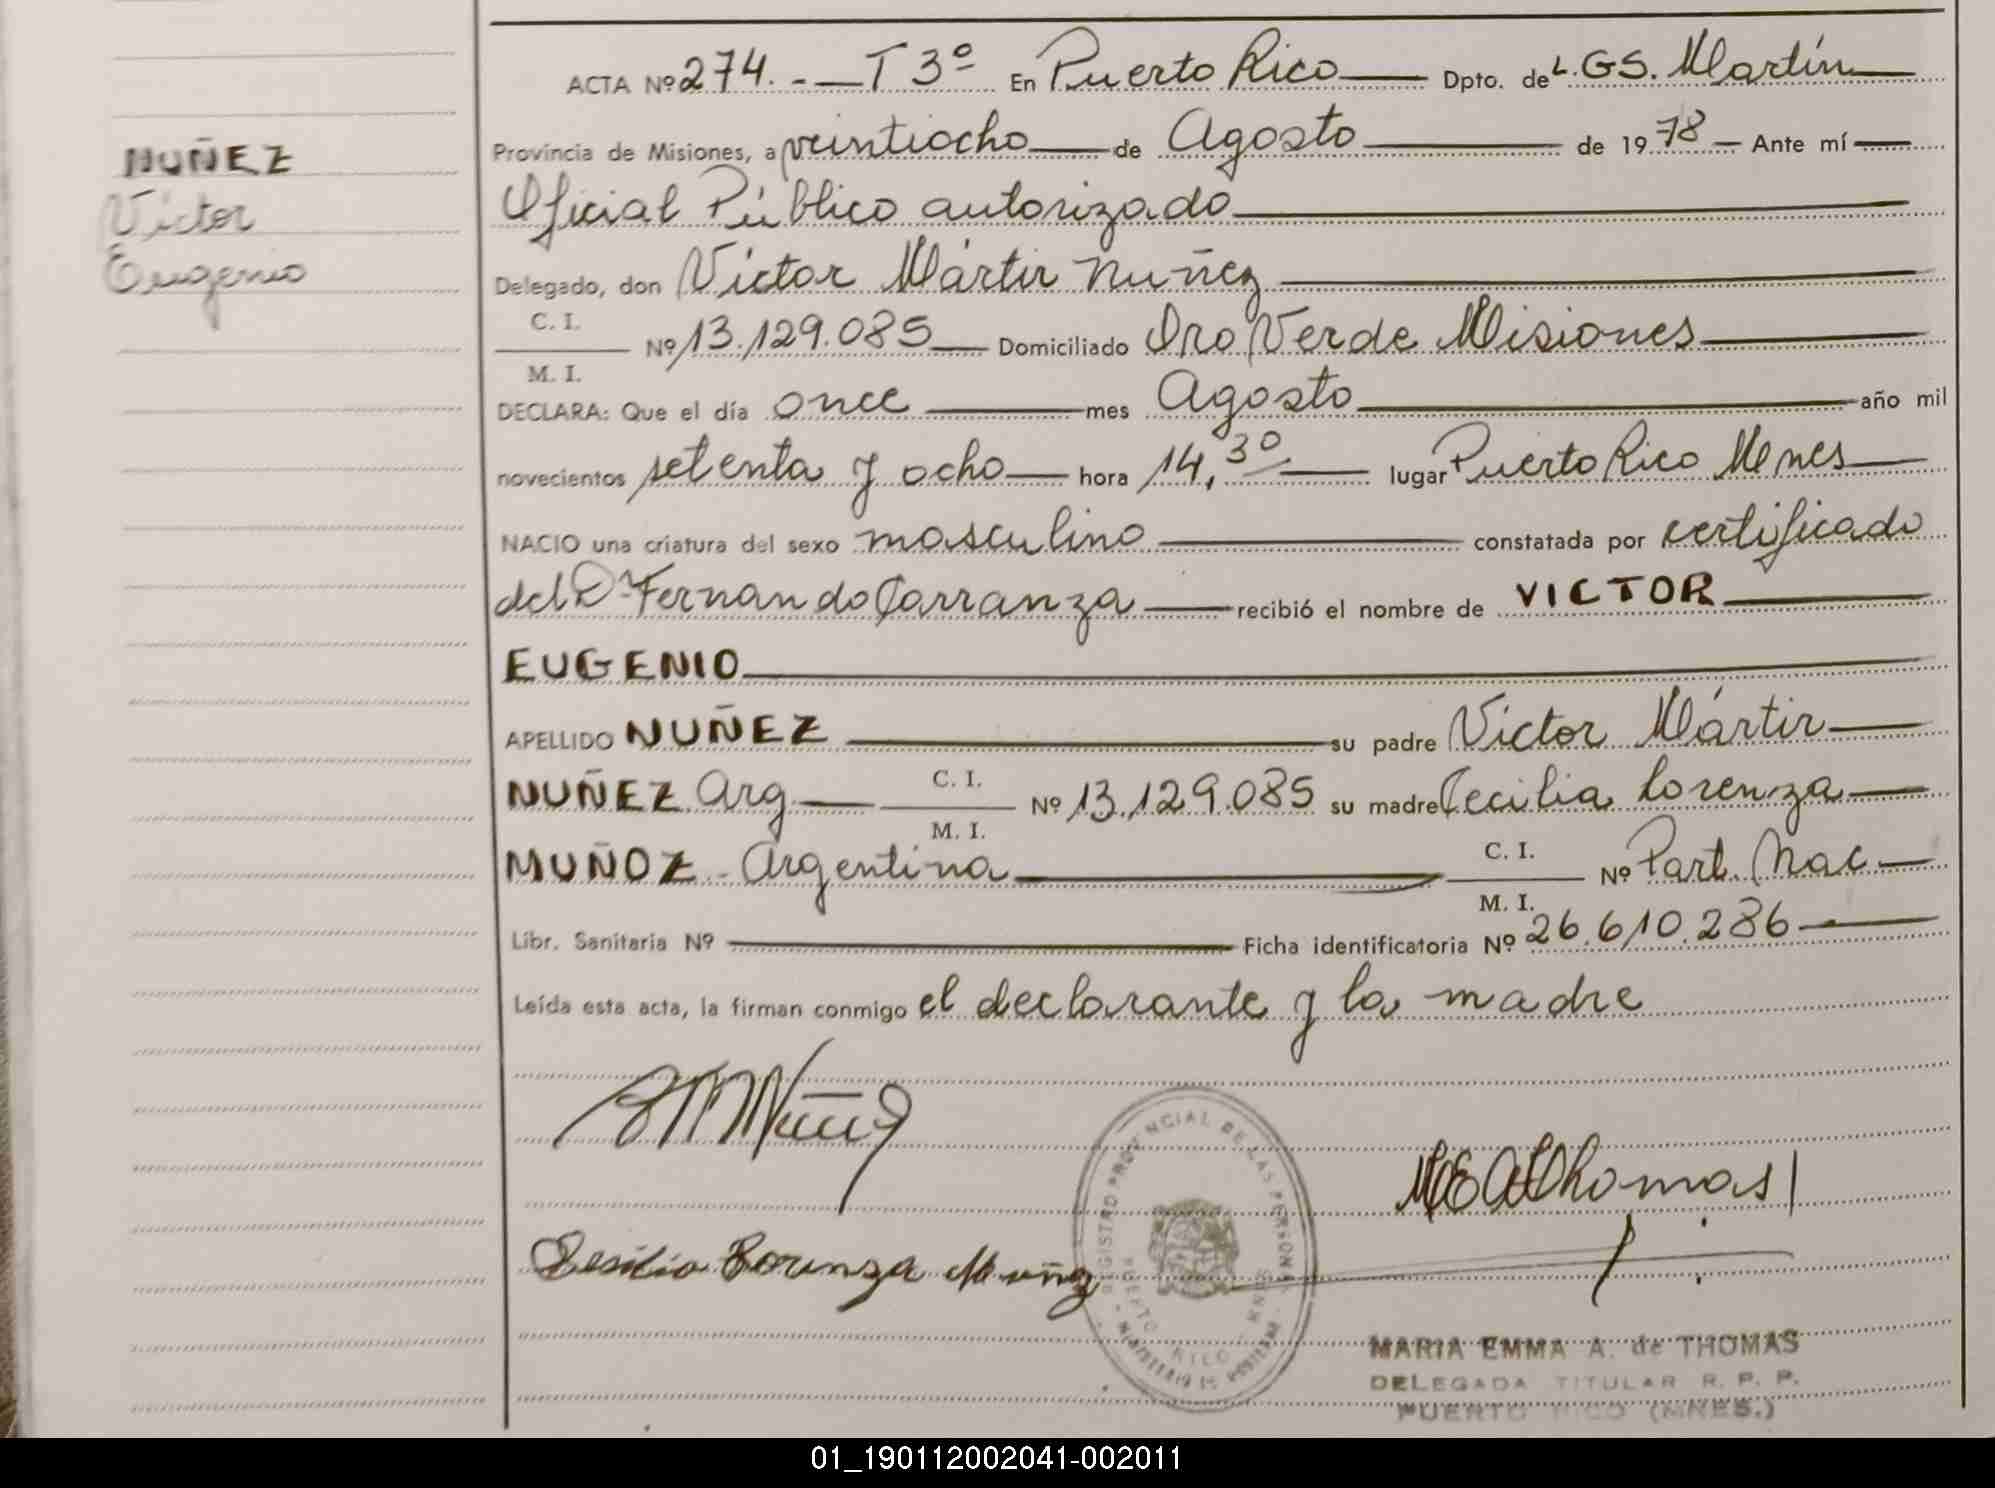 ACTA Nº 274.-—T 3º En Puerto Rico — Dpto. de L.GS. Martín —
NUÑEZ
Víctor
Eugenio
Provincia de Misiones, a veintiocho — de Agosto — de 1978 — Ante mí —
Oficial Público autorizado —
Delegado, don Víctor Mártir Nuñez —
C. I.
M. I.
Nº 13.129.085 — Domiciliado Oro Verde Misiones —
DECLARA: Que el día once — mes Agosto — año mil
novecientos setenta y ocho — hora 14,30 — lugar Puerto Rico Mnes —
NACIO una criatura del sexo masculino — constatada por certificado
del Dr Fernando Carranza — recibió el nombre de VICTOR —
EUGENIO —
APELLIDO NUÑEZ — su padre Víctor Mártir —
NUÑEZ Arg — C. I. M. I. Nº 13.129.085 su madre Cecilia Lorenza —
MUÑOZ - Argentina — C. I. M. I. Nº Part. Nac —
Libr. Sanitaria Nº — Ficha identificatoria Nº 26.610.286 —
Leída esta acta, la firman conmigo el declarante y la madre
REGISTRO PROVINCIAL DE LAS PERSONAS
PUERTO RICO MNES
MARIA EMMA A. de THOMAS
DELEGADA TITULAR R. P. P.
PUERTO RICO (MNES.)
01_190112002041-002011